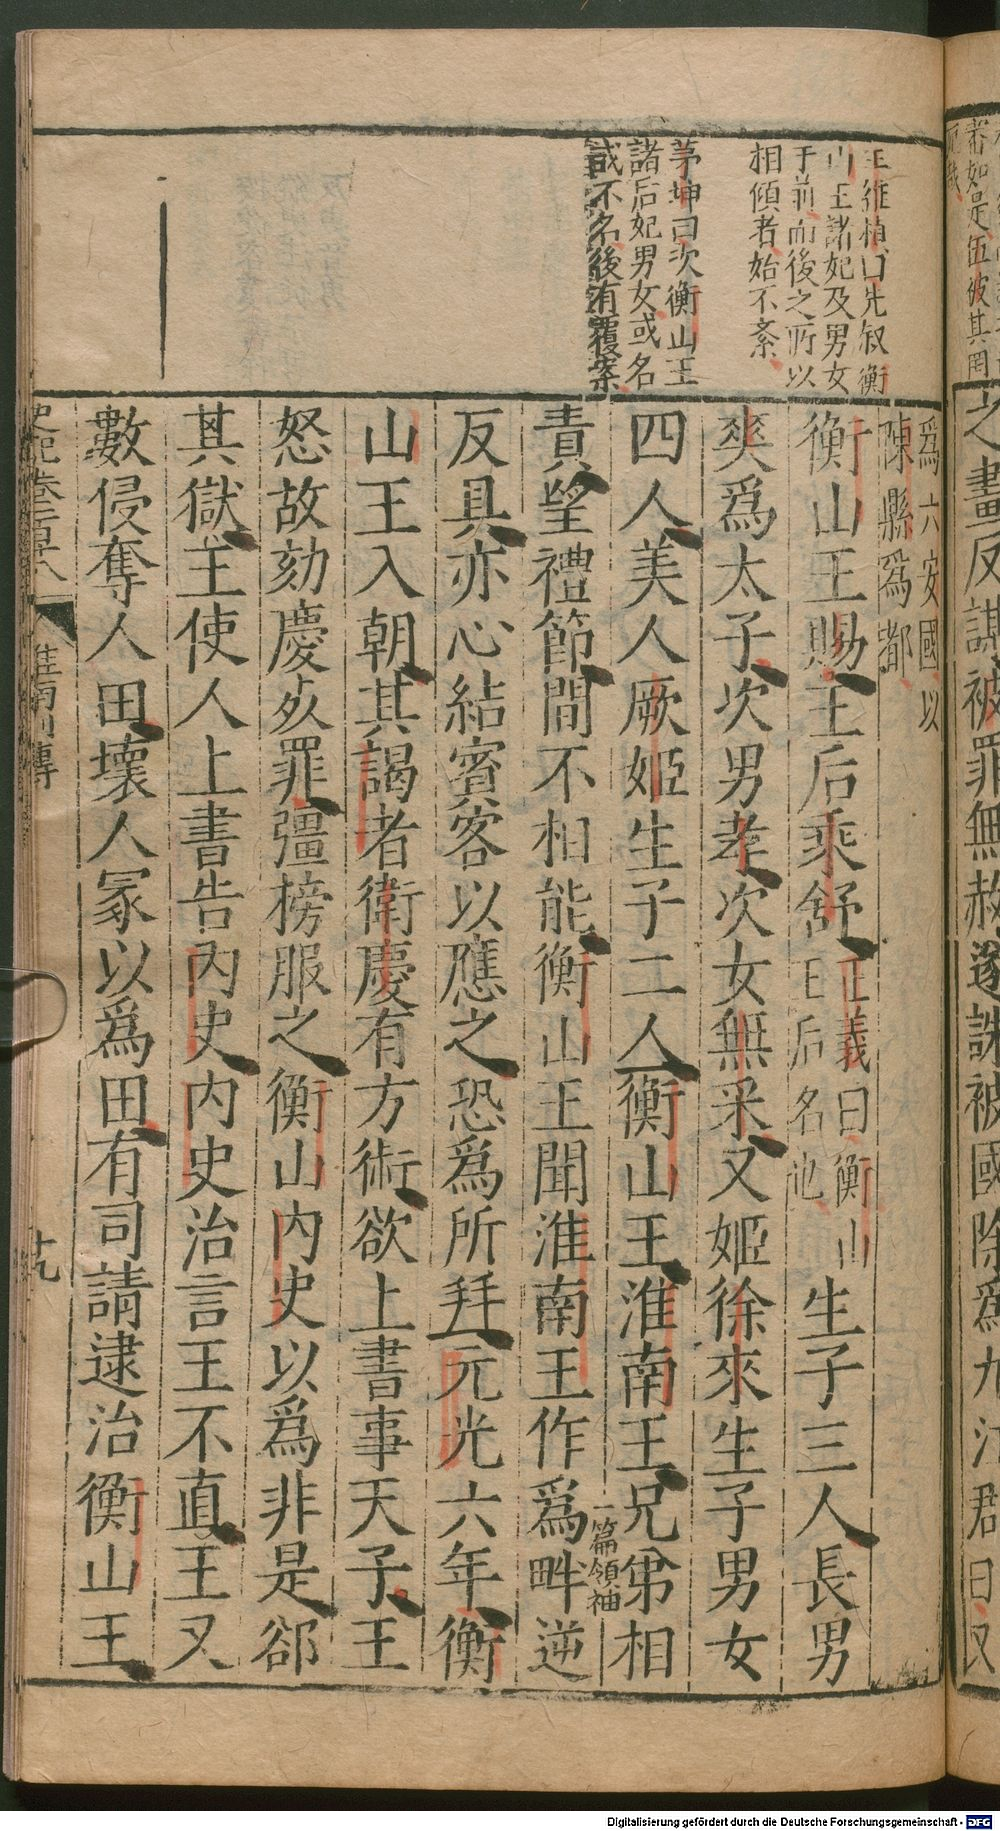 王維楨曰先叙衡
山王諸妃及男女
于前而後之所以
相傾者始不紊
茅坤曰次衡山王
諸后妃男女或名
或不名後有覆案
爲六安國以
陳縣爲都
衡山王賜王后乘舒正義曰衡山王后名也生子三人長男
爽爲太子次男孝次女無采又姬徐來生子男女
四人美人厥姬生子二人衡山王淮南王兄弟相
一篇領袖
責望禮節間不相能衡山王聞淮南王作爲畔逆
反具亦心結賓客以應之恐爲所拜元光六年衡
山王入朝其謁者衛慶有方術欲上書事天子王
怒故劾慶死罪彊榜服之衡山內史以爲非是郤
其獄王使人上書告內史內史治言王不直王又
數侵奪人田壞人冢以爲田有司請逮治衡山王
史記卷一百十八
淮南列傳
十九
之畫反謀被罪無赦遂誅被國除爲九江郡
Digitalisierung gefördert durch die Deutsche Forschungsgemeinschaft - DFG